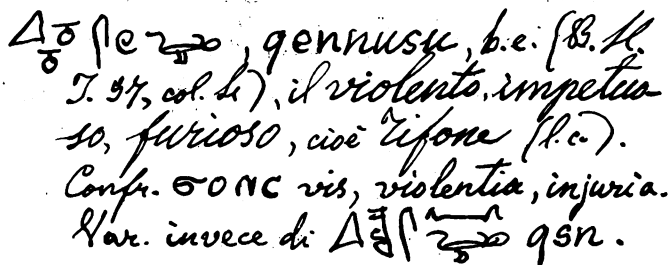 , qennusu, b.e. (B. M.
T. 97, col. ), il violento, impetuo
so, furioso, cioè Tifone (l.c.).
Confr. ϭⲟⲛⲥ vis, violentia, injuria.
Var. invece di qsn.